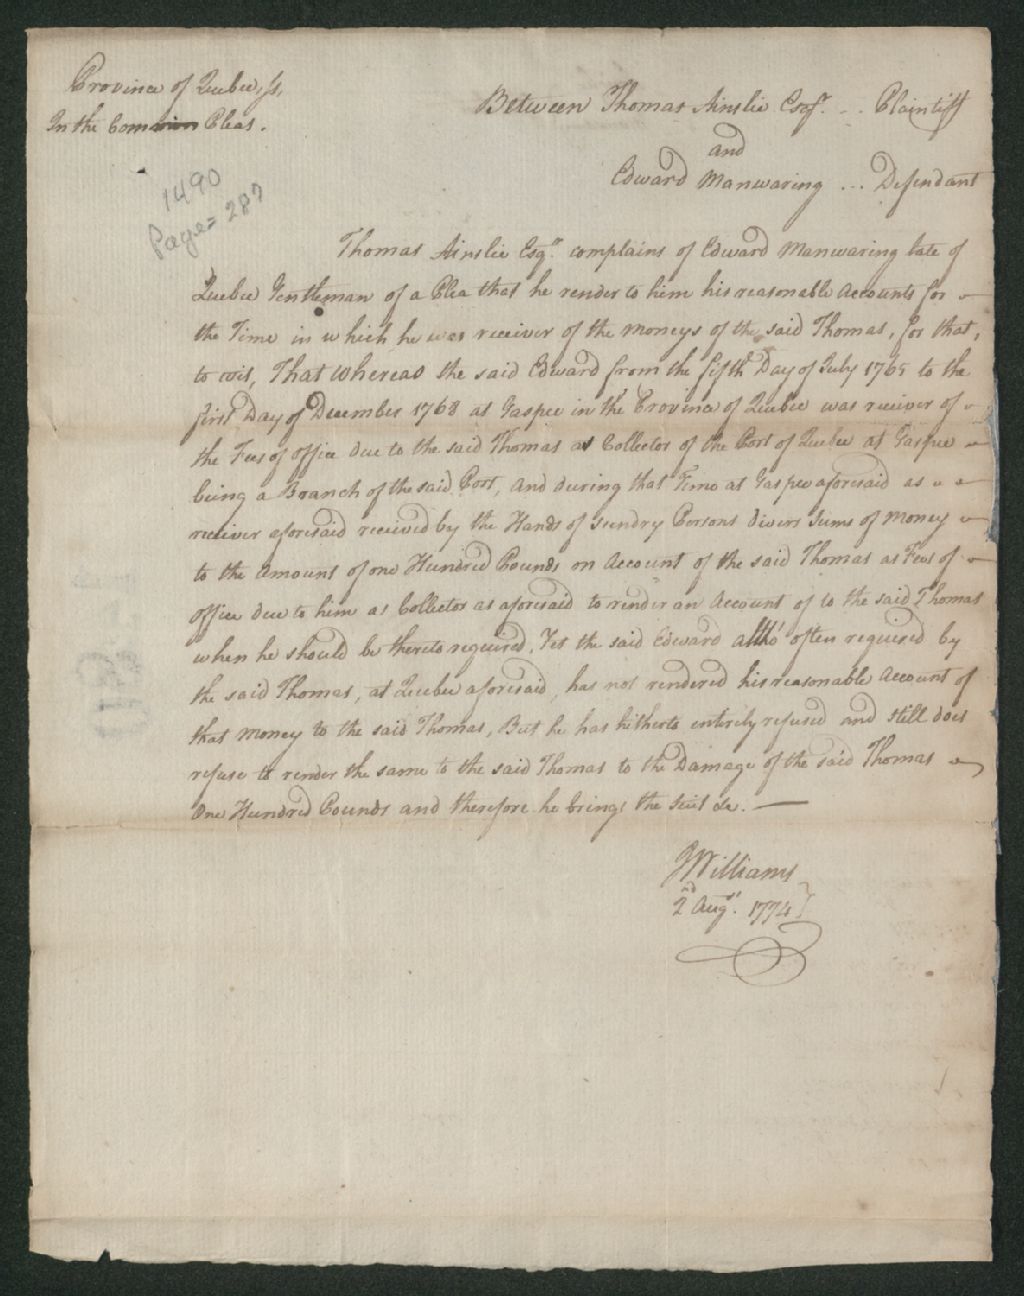 Province of Quebec, ss,
In the Common Pleas.
Between Thomas Ainslie Esqr. .. Plaintiff
and
Edward Manwaring ... Defendant
1490
Page= 287
Thomas Ainslie Esqr. complains of Edward Manwaring late of
Quebec Gentleman of a Plea that he render to him his reasonable Accounts for
the Time in which he was receiver of the moneys of the said Thomas, for that,
to wit, That Whereas the said Edward from the fifth Day of July 1765 to the
first Day of December 1768 at Gaspee in the Province of Quebec was receiver of
the Fees of office due to the said Thomas as Collector of the Port of Quebec at Gaspee
being a Branch of the said Port, and during that Time at Gaspee aforesaid as
receiver aforesaid received by the Hands of sundry Persons divers Sums of Money
to the amount of one Hundred Pounds on Account of the said Thomas as Fees of
office due to him as Collector as aforesaid to render an Account of to the said Thomas
when he should be thereto required, Yet the said Edward altho' often required by
the said Thomas, at Quebec aforesaid, has not rendered his reasonable Account of
that Money to the said Thomas, But he has hitherto entirely refused and still does
refuse to render the same to the said Thomas to the Damage of the said Thomas
One Hundred Pounds and therefore he brings the Suit &c.
JWilliams
2nd Augt. 1774